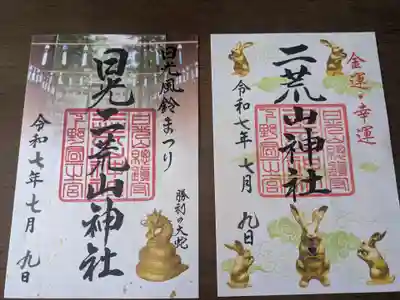 日光風鈴まつり
日光二荒山神社
勝利の大蛇
令和七年七月九日
金運・幸運
二荒山神社
令和七年七月九日